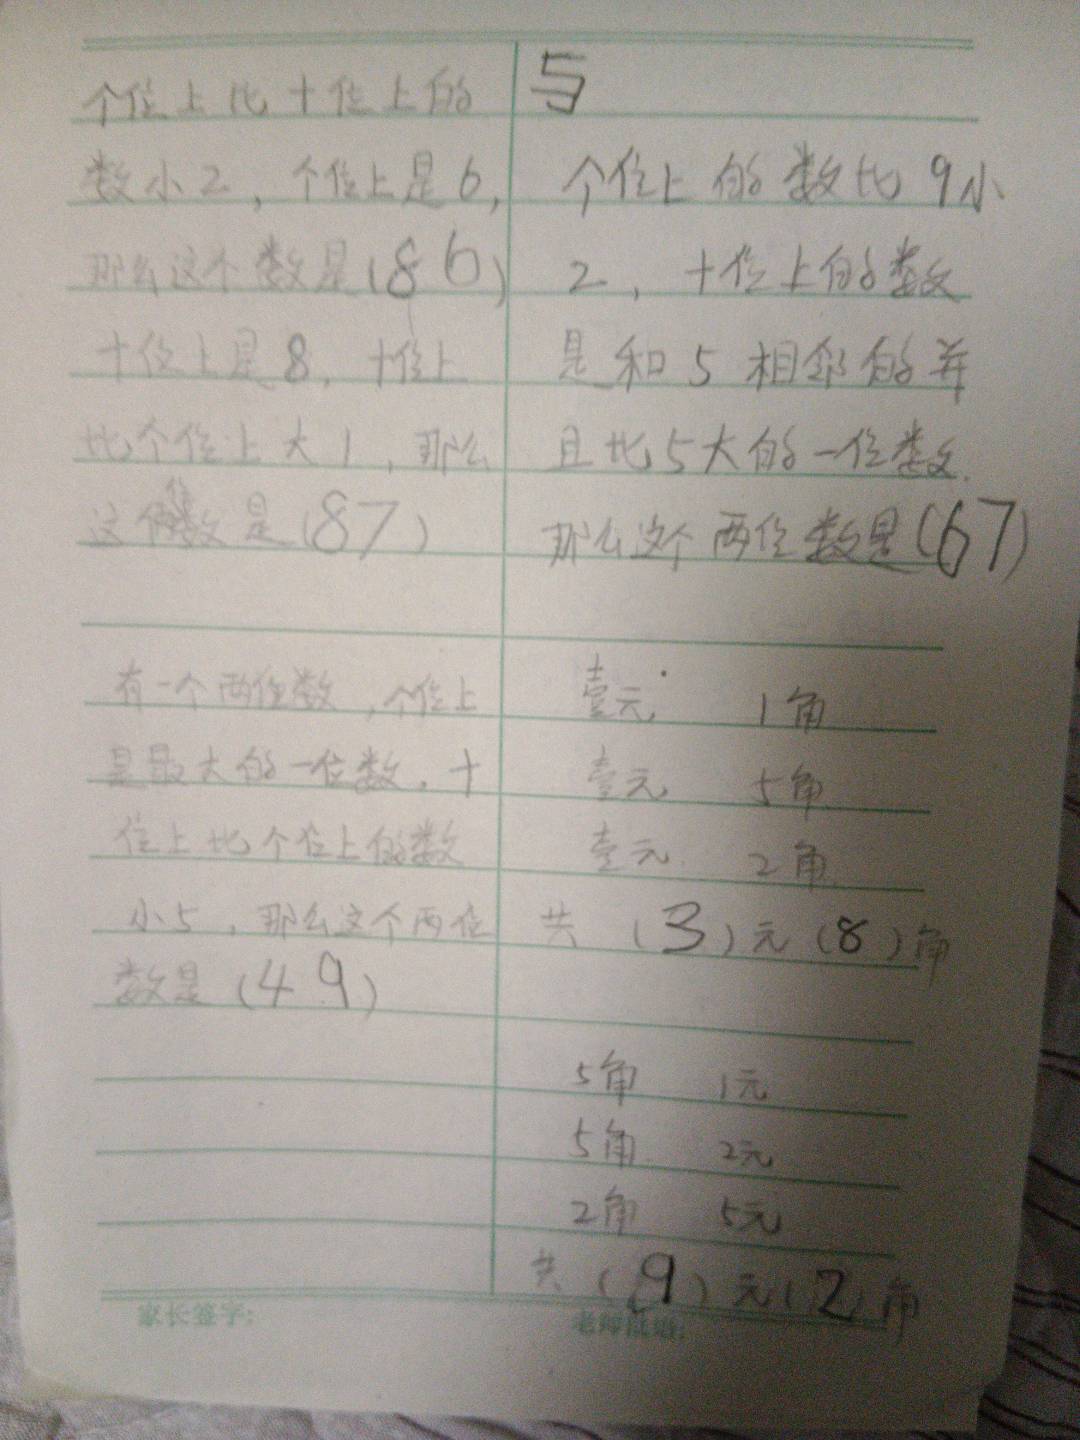 个位上比十位上的
数小2，个位上是6，
那么这个数是（86）
十位上是8，十位上
比个位上大1，那么
这个数是（87）
有一个两位数，个位上
是最大的一位数，十
位上比个位上的数
小5，那么这个两位
数是（49）
与
个位上的数比9小
2，十位上的数
是和5相邻的并
且比5大的一位数，
那么这个两位数是（67）
壹元 1角
壹元 5角
壹元 2角
共（3）元（8）角
5角 1元
5角 2元
2角 5元
共（9）元（2）角
家长签字：
老师批语：